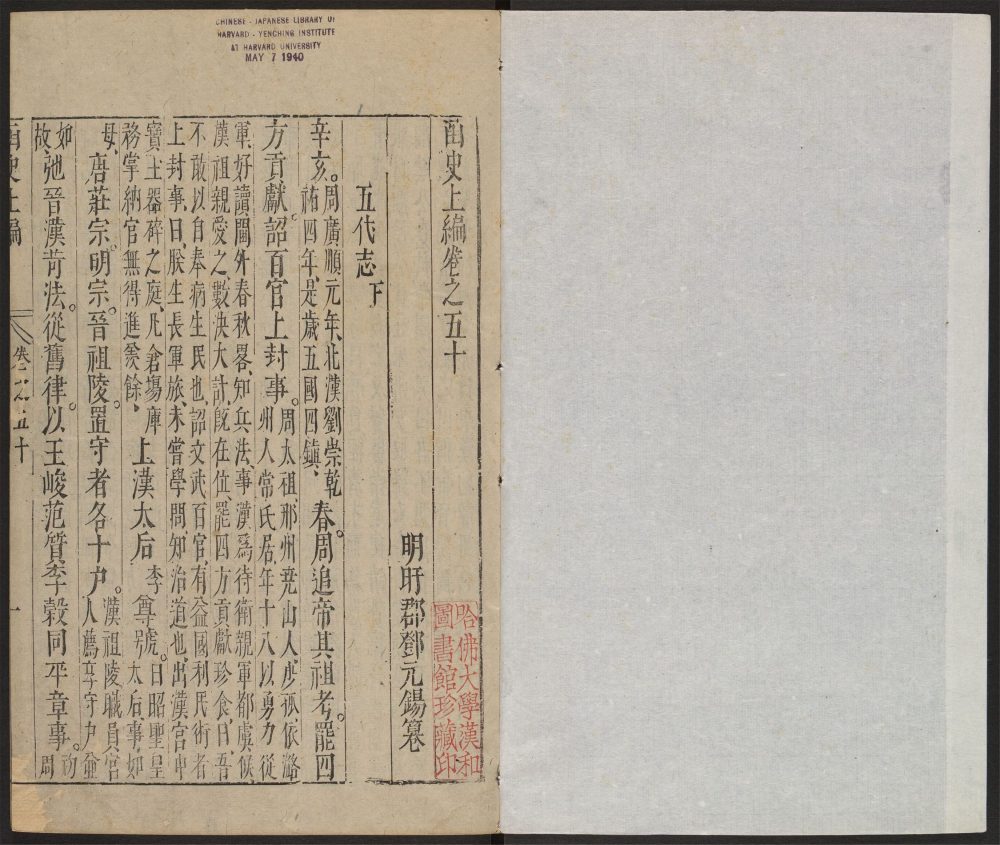 CHINESE - JAPANESE LIBRARY OF
HARVARD - YENCHING INSTITUTE
AT HARVARD UNIVERSITY
MAY 7 1940
函史上編卷之五十
哈佛大學漢和
圖書館珍藏印
明盱郡鄧元錫纂
五代志下
辛亥。周廣順元年、北漢劉崇乾祐四年、是歲五國四鎮、春。周追帝其祖考。罷四
方貢獻。詔百官上封事。周太祖、邢州堯山人、少孤、依潞州人常氏居、年十八以勇力從
軍、好讀閫外春秋、畧知兵法、事漢爲侍衛親軍都虞候、
漢祖親愛之、數決大計、既在位、罷四方貢獻珍食、曰、吾
不敢以自奉病生民也、詔文武百官、有益國利民術者
上封事、曰、朕生長軍旅、未嘗學問、知治道也、出漢宮中
寶玉器碎之庭、凡倉場庫務掌納官無得進羨餘、上漢太后李尊號。曰昭聖皇太后、事如
母。唐莊宗。明宗。晉祖陵。置守者各十戶。漢祖陵職員宮人薦享守戶並
如故、弛晉漢苛法。從舊律。以王峻范質李穀同平章事。初周
函史上編 卷之五十 一